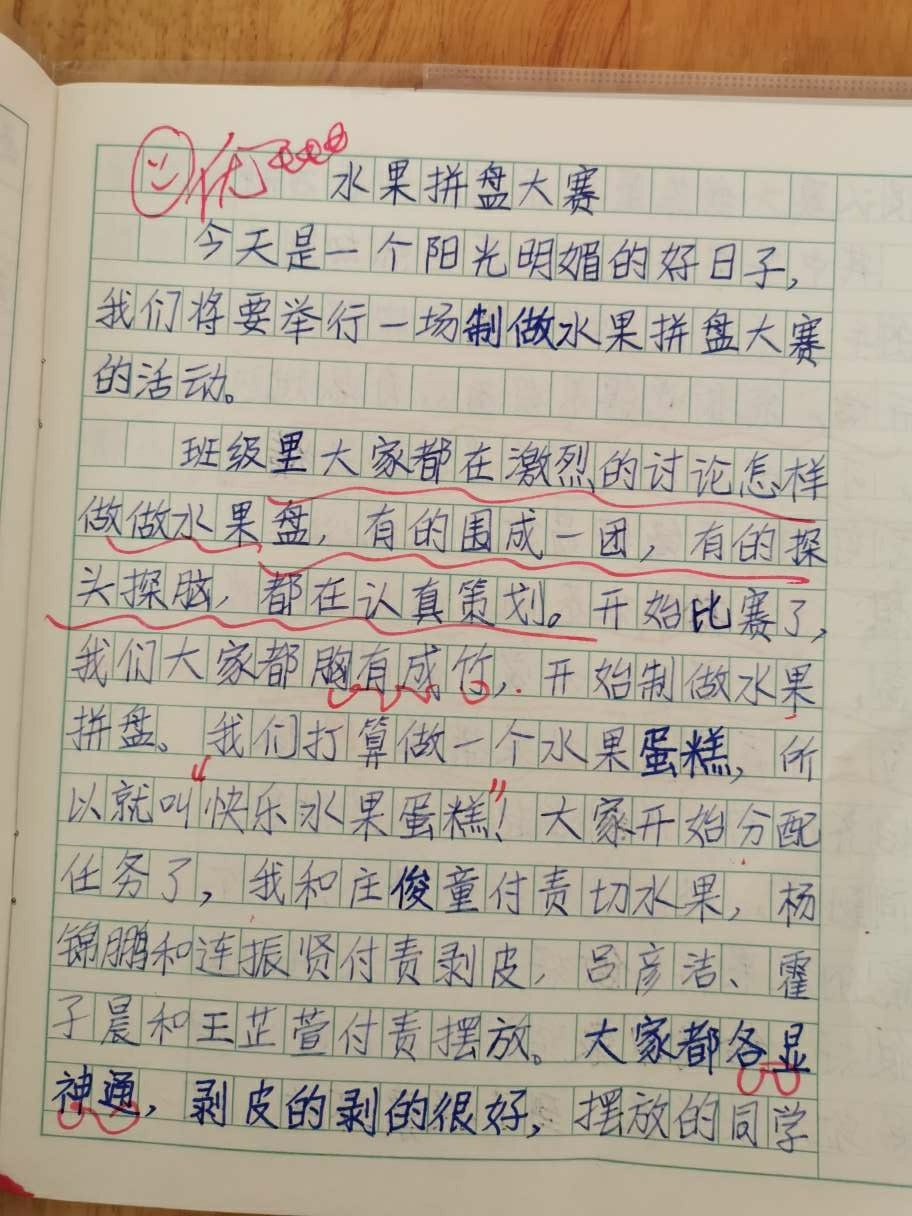 优 水果拼盘大赛
今天是一个阳光明媚的好日子，
我们将要举行一场制做水果拼盘大赛
的活动。
班级里大家都在激烈的讨论怎样
做做水果盘，有的围成一团，有的探
头探脑，都在认真策划。开始比赛了，
我们大家都胸有成竹，开始制做水果
拼盘。我们打算做一个水果蛋糕，所
以就叫“快乐水果蛋糕”！大家开始分配
任务了，我和庄俊童付责切水果，杨
锦鹏和连振贤付责剥皮，吕彦洁、霍
子晨和王芷萱付责摆放。大家都各显
神通，剥皮的剥的很好，摆放的同学